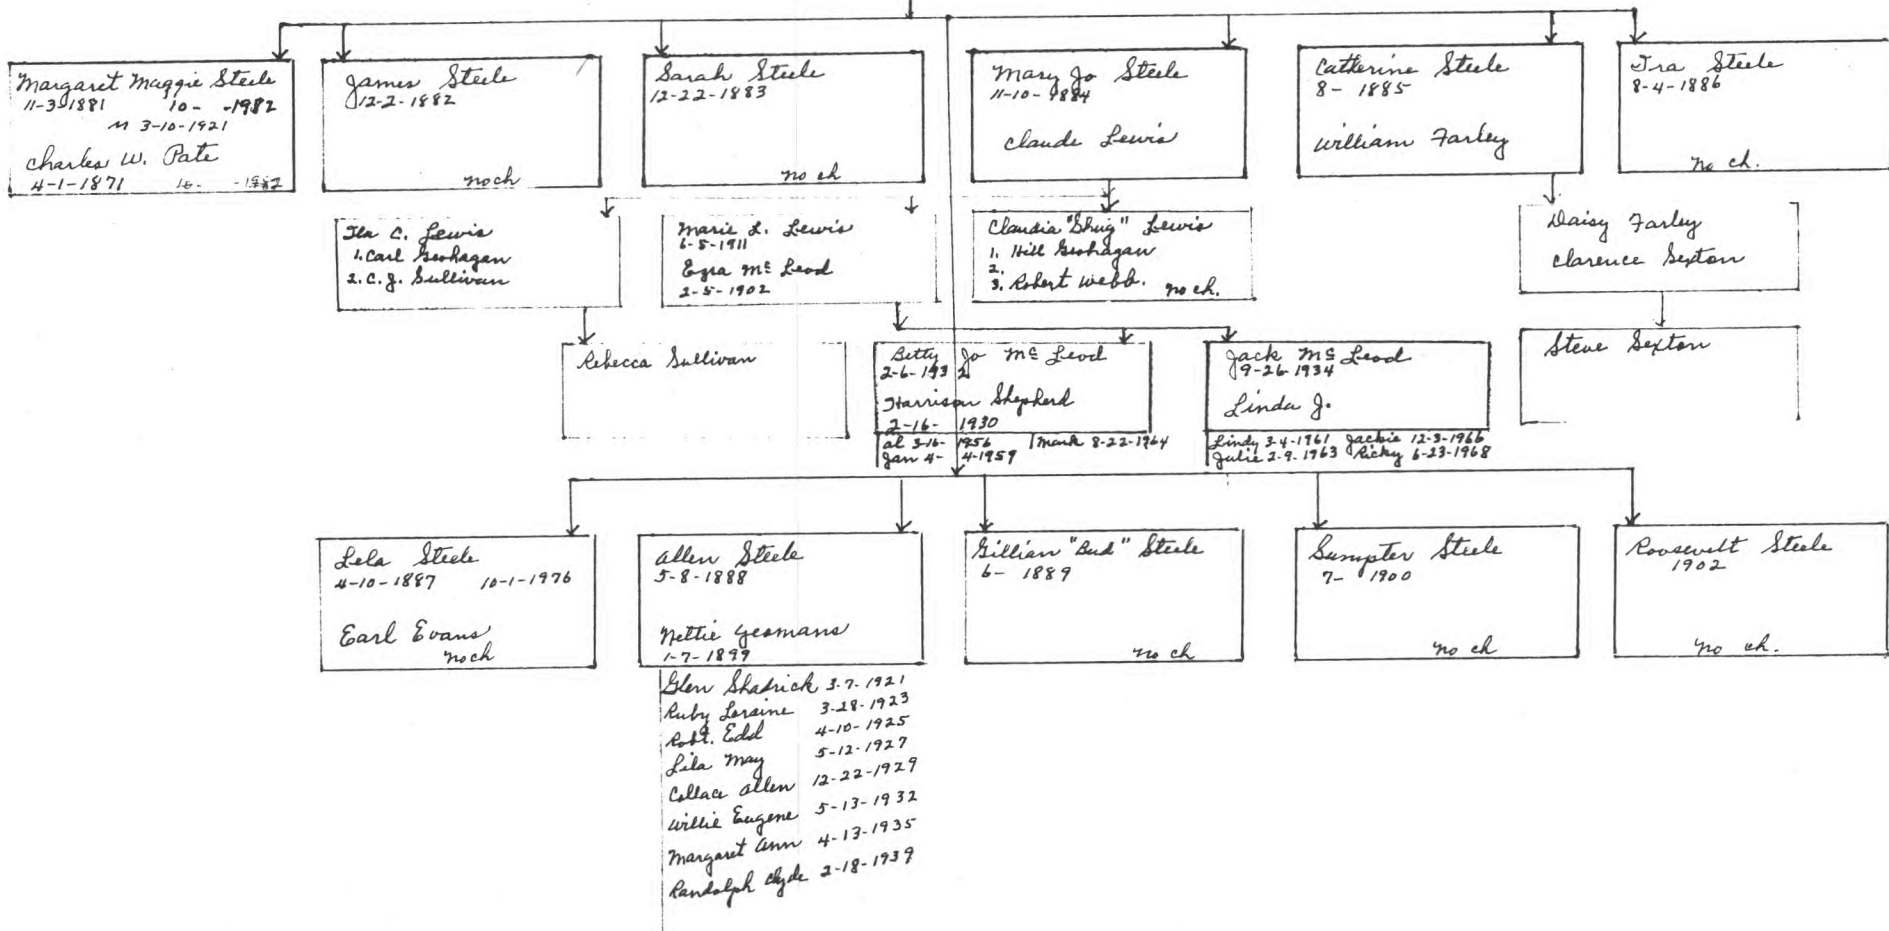 Margaret Maggie Steele
11-3-1881 10- -1982
m 3-10-1921
Charles W. Pate
4-1-1871
James Steele
12-2-1882
no ch
Sarah Steele
12-22-1883
no ch
Mary Jo Steele
11-10-1884
Claude Lewis
Catherine Steele
8- 1885
William Farley
Ira Steele
8-4-1886
No ch.
C. Lewis
1. Carl Geohagan
2. C. J. Sullivan
Marie L. Lewis
6-5-1911
Ezra Mc Leod
2-5-1902
Claudia "Shug" Lewis
1. Hill Geohagan
2.
3. Robert Webb. no ch.
Daisy Farley
Clarence Sexton
Rebecca Sullivan
Betty Jo Mc Leod
2-6-1932
Harrison Shepherd
2-16- 1930
al 3-16- 1956 Mark 8-22-1964
Jan 4- 4-1959
Jack Mc Leod
9-26-1934
Linda J.
Lindy 3-4-1961 Jackie 12-3-1966
Julie 2-9-1963 Ricky 6-23-1968
Steve Sexton
Lela Steele
4-10-1887 10-1-1976
Earl Evans
no ch
Allen Steele
5-8-1888
Nettie Yeomans
1-7-1899
Glen Shadrick 3-7-1921
Ruby Loraine 3-28-1923
Robt. Edd 4-10-1925
Lila May 5-12-1927
Collace Allen 12-22-1929
Willie Eugene 5-13-1932
Margaret Ann 4-13-1935
Randolph Clyde 2-18-1939
Gillian "Bud" Steele
6- 1889
no ch
Sumpter Steele
7- 1900
no ch
Roosevelt Steele
1902
No ch.